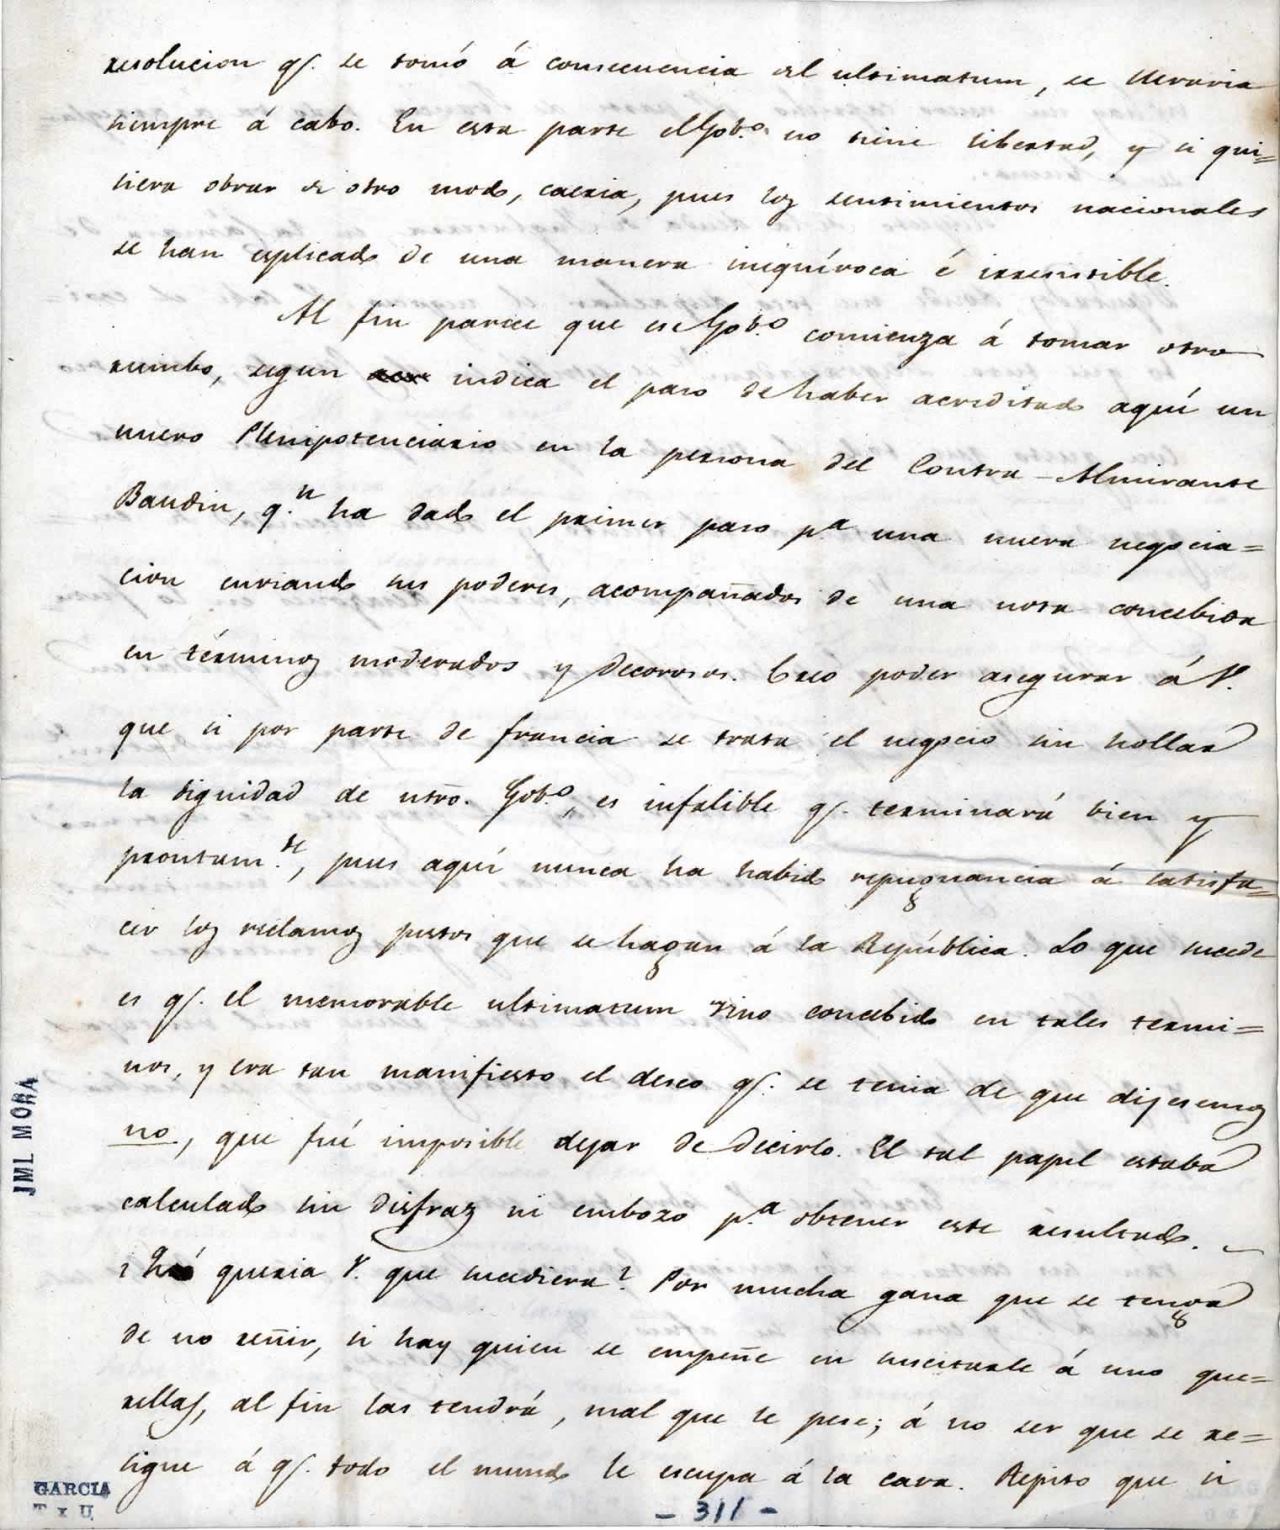 resolucion qe. se tomó á consecuencia del ultimatum, se llevaria
siempre á cabo. En esta parte el Gobo. no tiene libertad, y si qui=
siera obrar de otro modo, caeria, pues los sentimientos nacionales
se han esplicado de una manera inequívoca é irresistible.
Al fin parece que ese Gobo. comienza á tomar otro
rumbo, segun indica el paso de haber acreditado aquí un
nuevo Plenipotenciario en la persona del Contra-Almirante
Baudin, qn. ha dado el primer paso pa. una nueva negocia=
cion enviando sus poderes, acompañados de una nota concebida
en términos moderados y decorosos. Creo poder asegurar á V.
que si por parte de francia se trata el negocio sin hollar
la dignidad de ntro. Gobo., es infalible qe. terminará bien y
prontamte., pues aquí nunca ha habido repugnancia á satisfa=
cer los reclamos justos que se hagan á la República. Lo que sucede
es qe. el memorable ultimatum vino concebido en tales termi=
nos, y era tan manifiesto el deseo qe. se tenia de que dijesemos
no, que fué imposible dejar de decirlo. El tal papel estaba
calculado sin disfraz ni embozo pa. obtener este resultado.
¿Qué queria V. que sucediera? Por mucha gana que se tenga
de no reñir, si hay quien se empeñe en suscitarle á uno que=
rellas, al fin las tendrá, mal que le pese; á no ser que se re=
signe á qe. todo el mundo le escupa á la cara. Repito que si
JML MORA
GARCIA
T x U
- 311 -